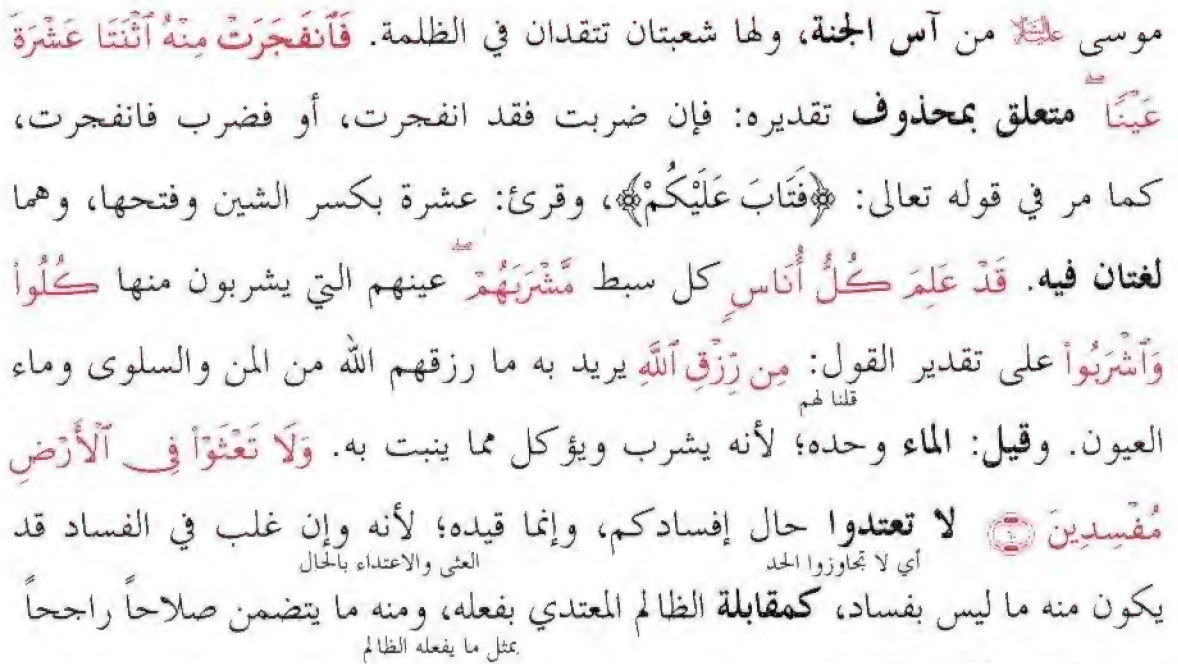 موسى عليه السلام من آس الجنة، ولها شعبتان تتقدان في الظلمة. فَٱنفَجَرَتْ مِنْهُ ٱثْنَتَا عَشْرَةَ
عَيْنًا ۖ متعلق بمحذوف تقديره: فإن ضربت فقد انفجرت، أو فضرب فانفجرت،
كما مر في قوله تعالى: ﴿فَتَابَ عَلَيْكُمْ﴾، وقرئ: عشرة بكسر الشين وفتحها، وهما
لغتان فيه. قَدْ عَلِمَ كُلُّ أُنَاسٍ كل سبط مَّشْرَبَهُمْ ۖ عينهم التي يشربون منها كُلُواْ
وَٱشْرَبُواْ على تقدير القول: مِن رِّزْقِ ٱللَّهِ يريد به ما رزقهم الله من المن والسلوى وماء
قلنا لهم
العيون. وقيل: الماء وحده؛ لأنه يشرب ويؤكل مما ينبت به. وَلَا تَعْثَوْاْ فِى ٱلْأَرْضِ
مُفْسِدِينَ ۝٦٠ لا تعتدوا حال إفسادكم، وإنما قيده؛ لأنه وإن غلب في الفساد قد
أي لا تجاوزوا الحد العثى والاعتداء بالحال
يكون منه ما ليس بفساد، كمقابلة الظالم المعتدي بفعله، ومنه ما يتضمن صلاحاً راجحاً
بمثل ما يفعله الظالم